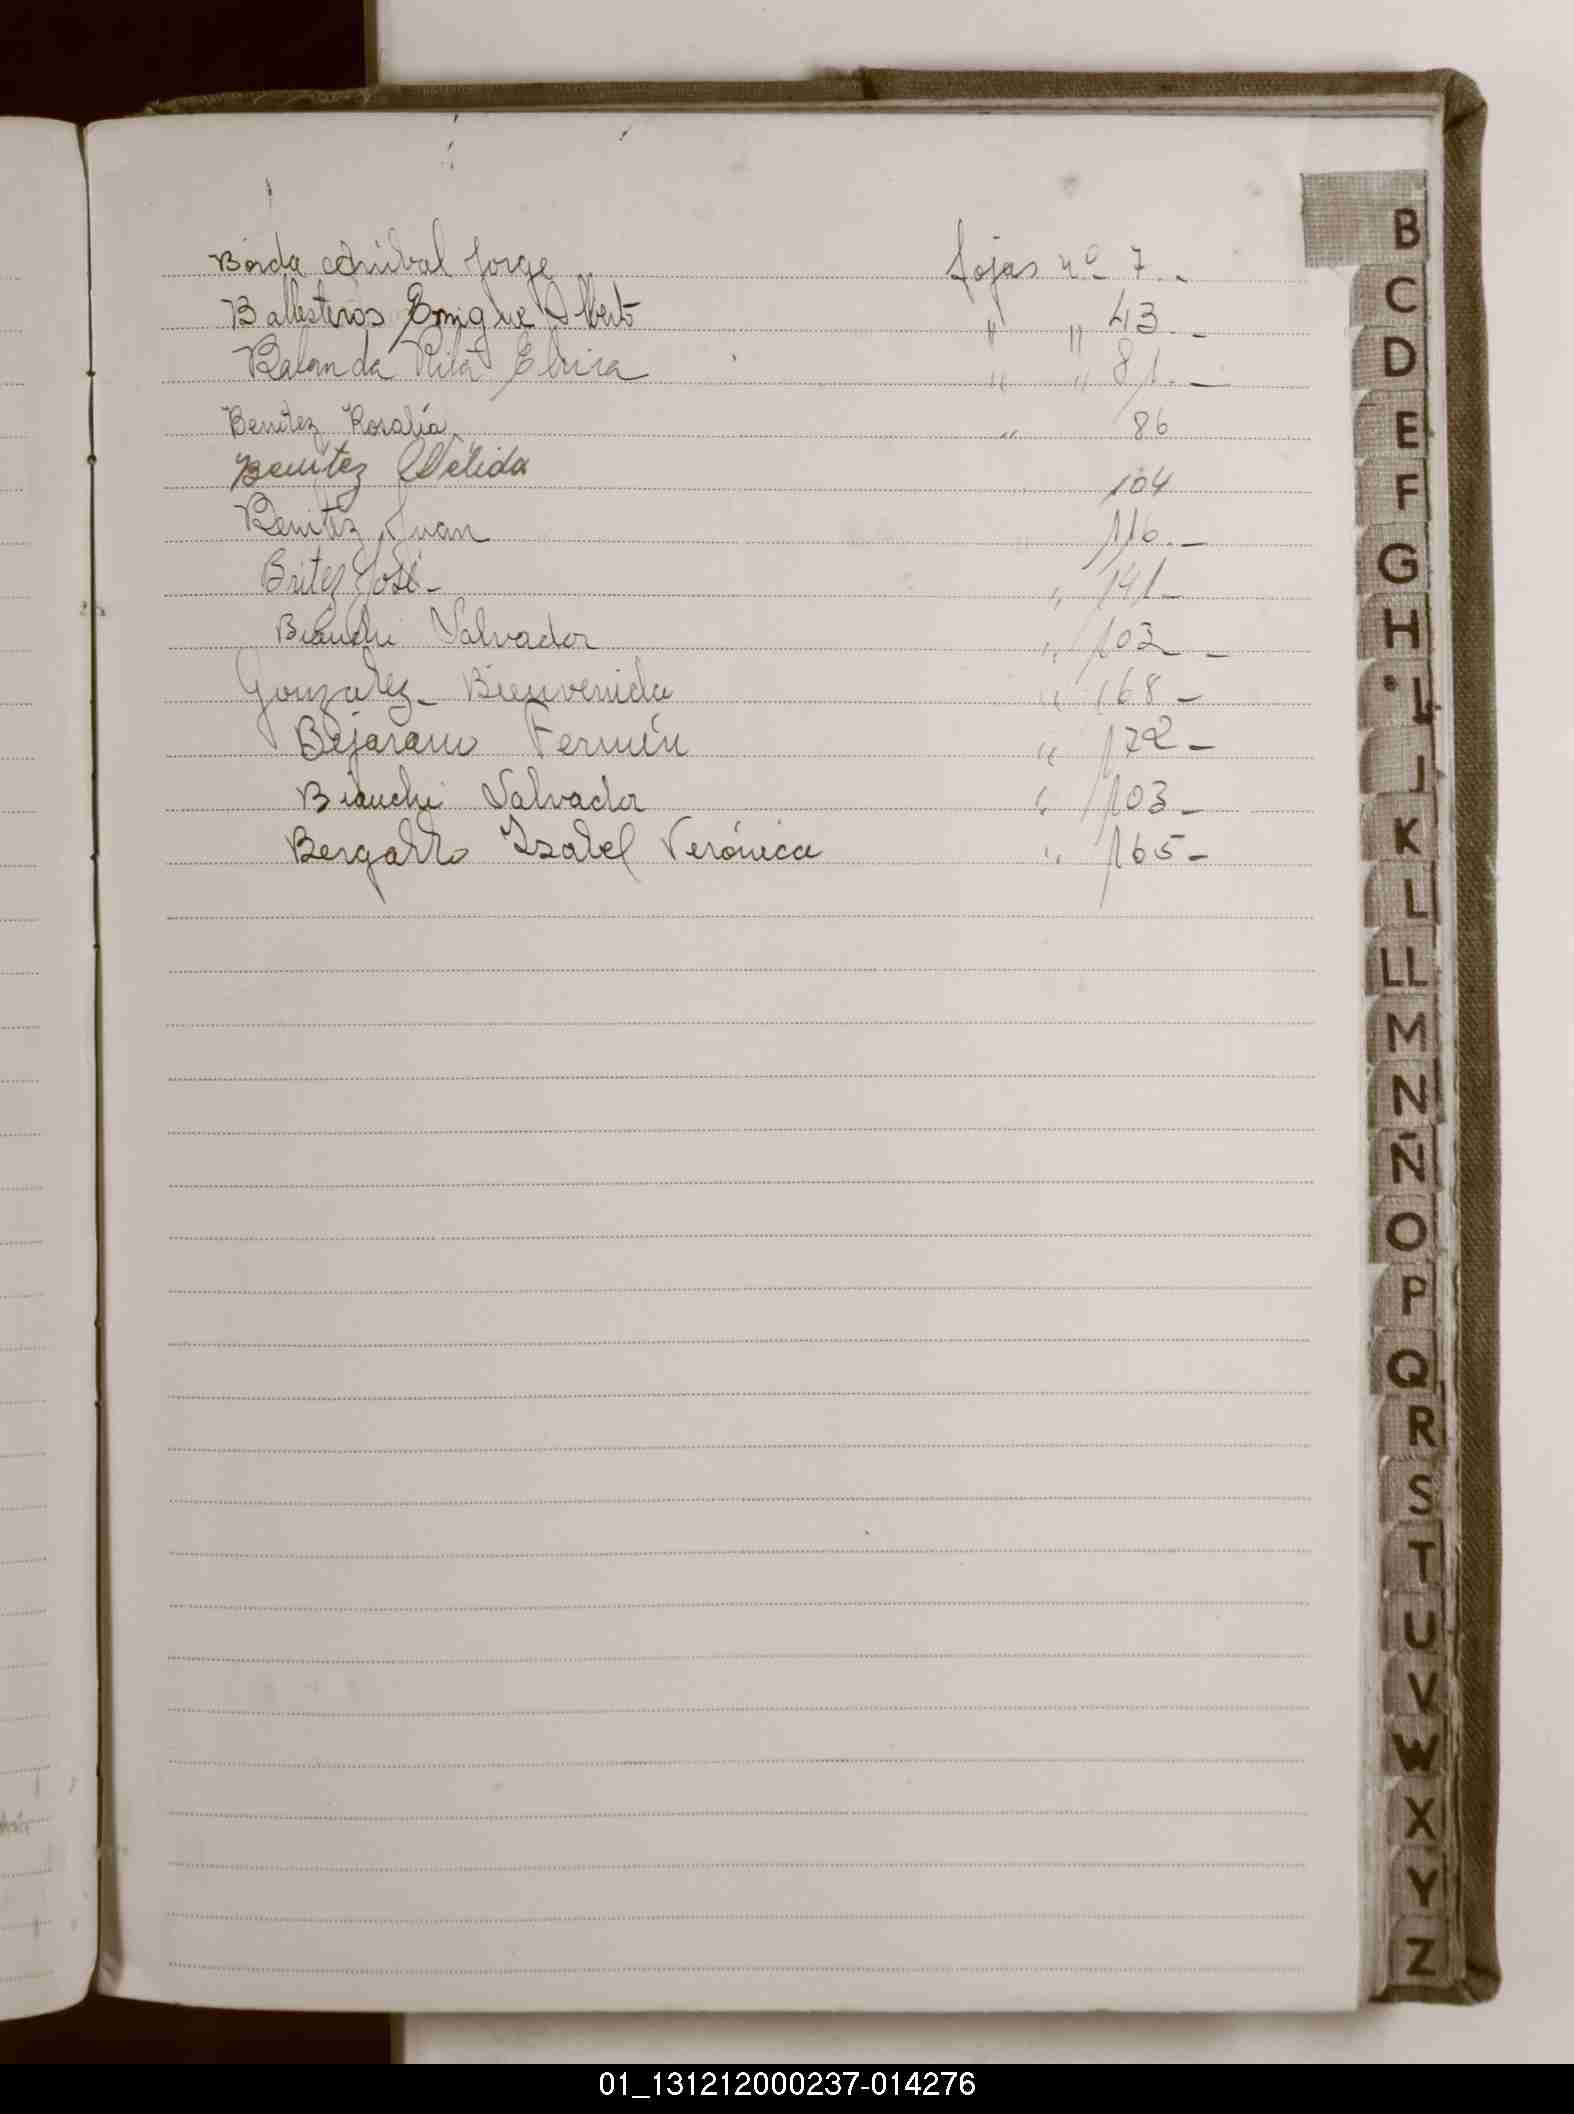 Borda Anibal Jorge fojas nº 7 -
Ballesteros Enrique Alberto " " 43 -
Balanda Rita Elvira " " 81. -
Benitez Rosalía " 86
Benitez Délida 104
Benitez Juan " 116. -
Britez José - " 141 -
Bianchi Salvador " 103 -
Gonzalez - Bienvenida " 168 -
Bejarano Fermín " 172 -
Bianchi Salvador " 103 -
Isabel Verónica " 165 -
B
C
D
E
F
G
H
I
J
K
L
LL
M
N
Ñ
O
P
Q
R
S
T
U
V
W
X
Y
Z
01_131212000237-014276